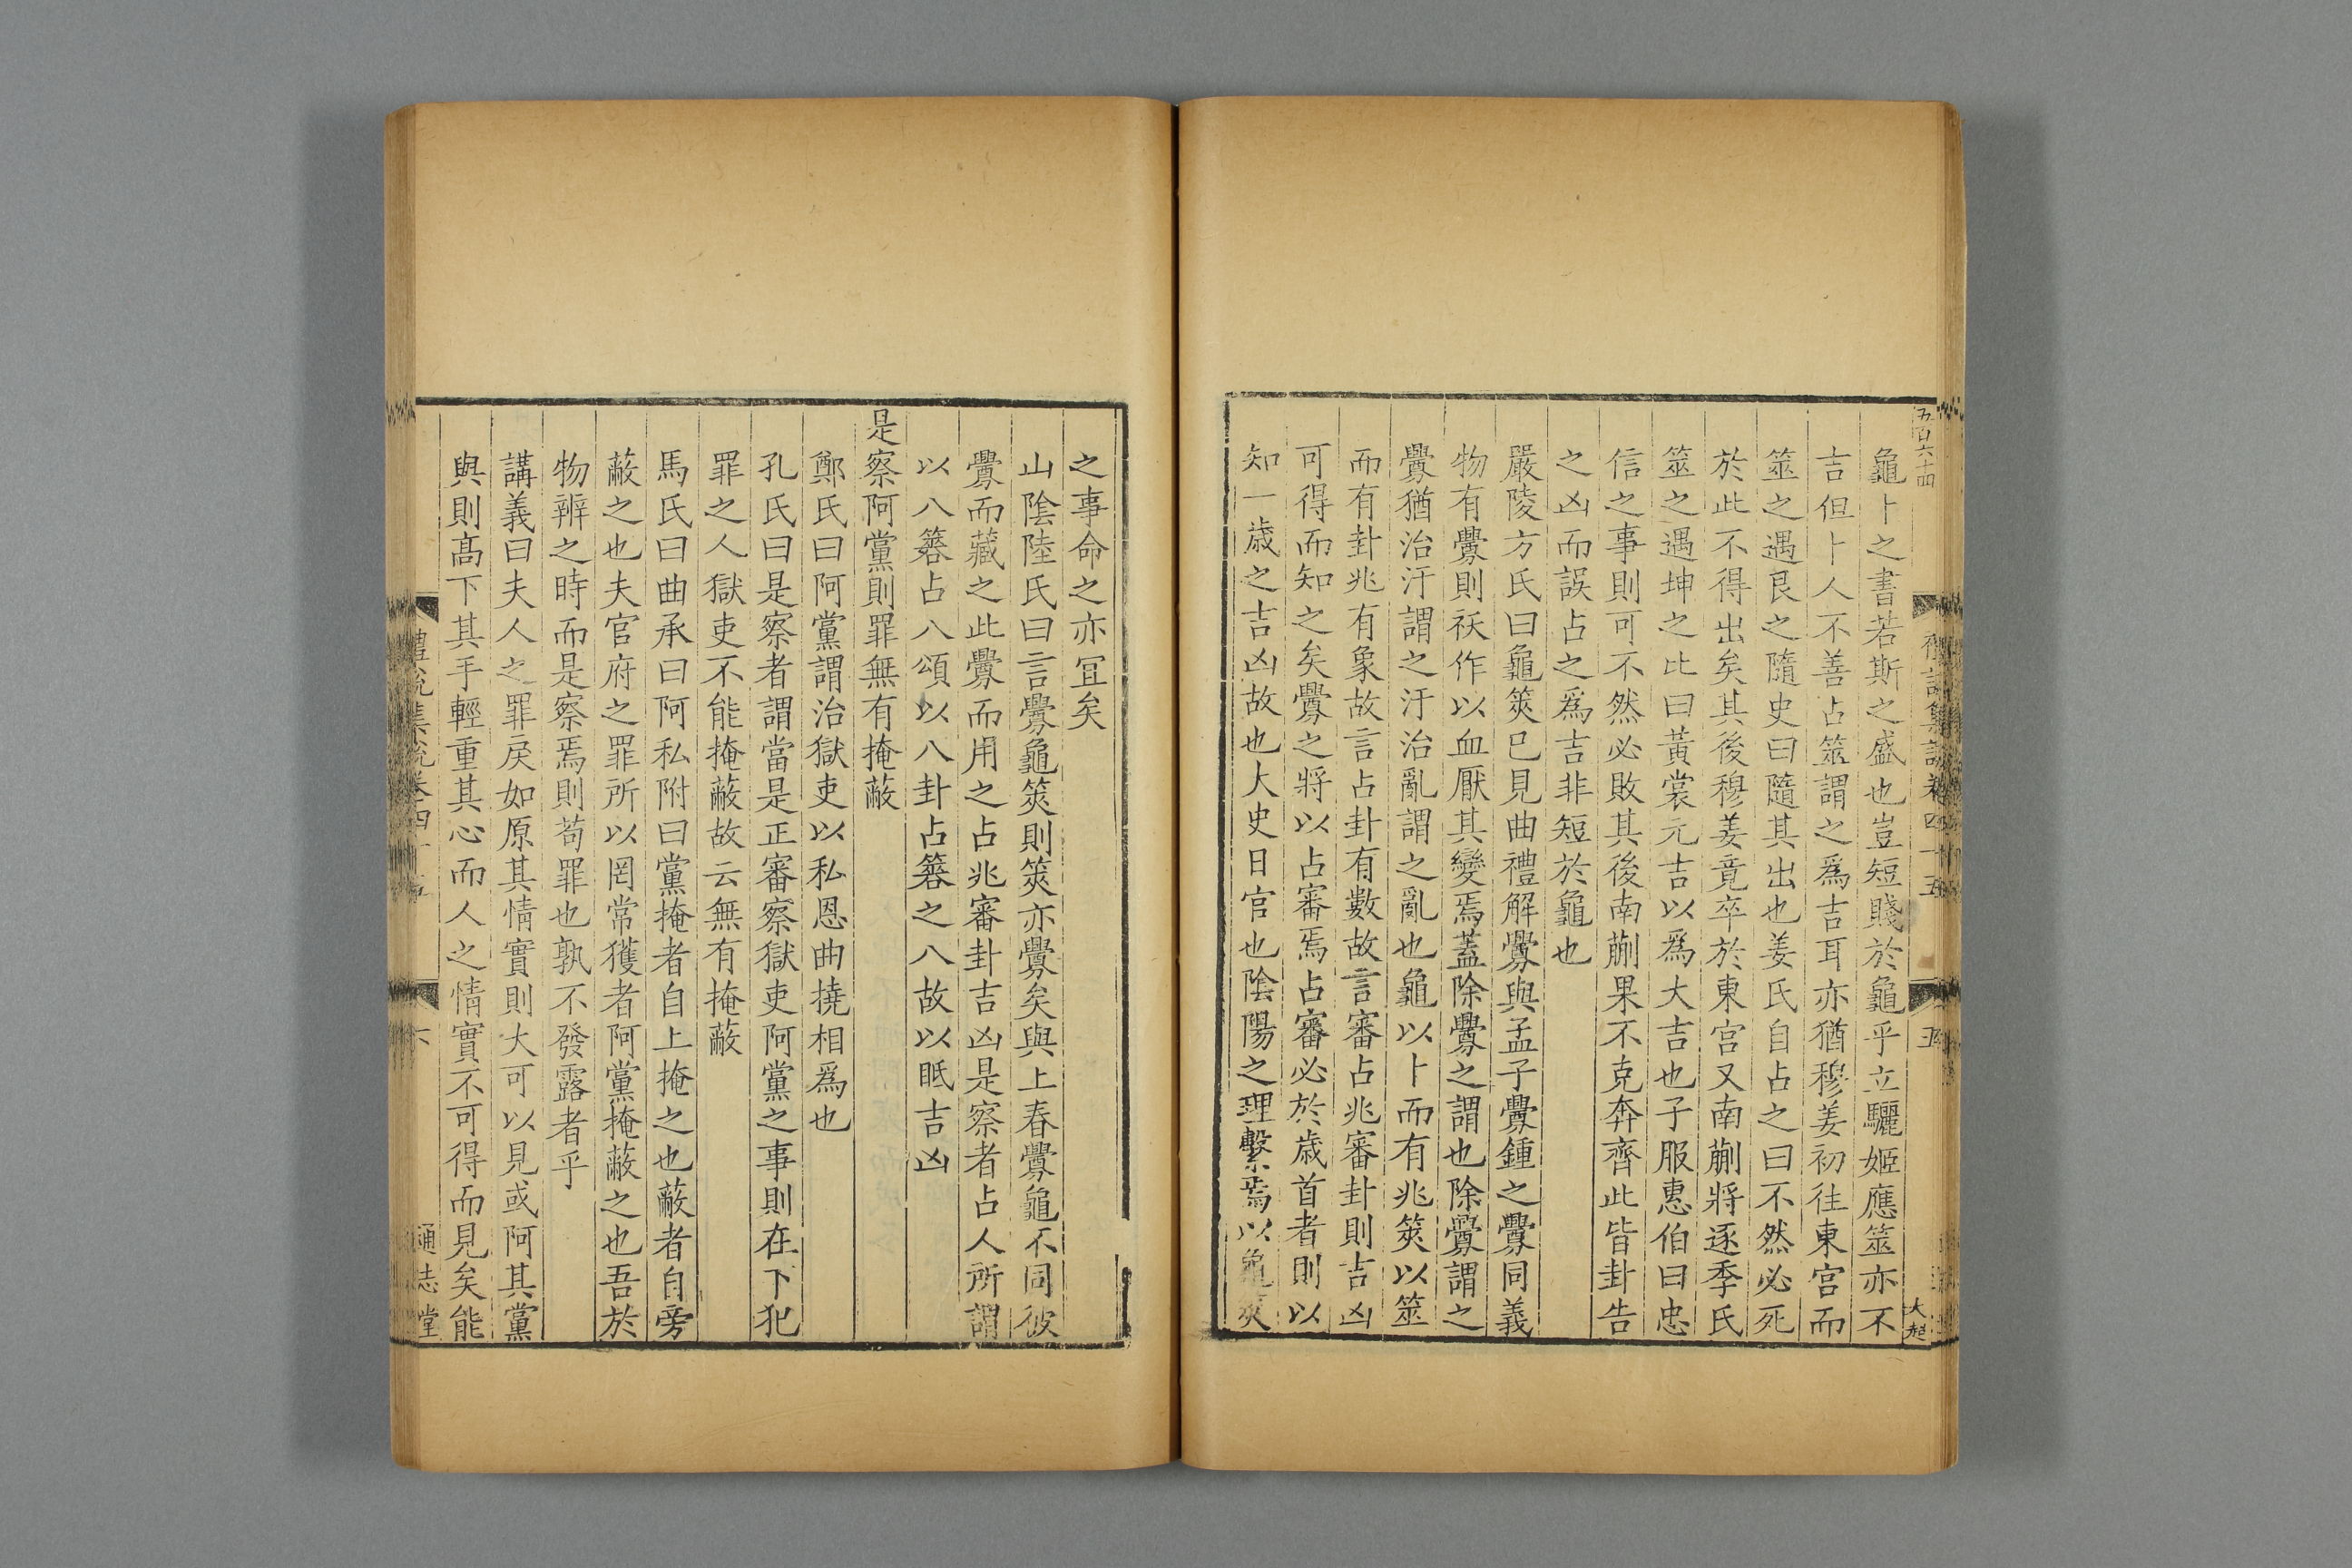 五百六十四
禮記集說卷四十五
五
大起
龜卜之書若斯之盛也豈短賤於龜乎立驪姬應筮亦不
吉但卜人不善占筮謂之爲吉耳亦猶穆姜初往東宮而
筮之遇艮之隨史曰隨其出也姜氏自占之曰不然必死
於此不得出矣其後穆姜竟卒於東宮又南蒯將逐季氏
筮之遇坤之比曰黃裳元吉以爲大吉也子服惠伯曰忠
信之事則可不然必敗其後南蒯果不克奔齊此皆卦告
之凶而誤占之爲吉非短於龜也
嚴陵方氏曰龜筴已見曲禮解釁與孟子釁鍾之釁同義
物有釁則祅作以血厭其變焉蓋除釁之謂也除釁謂之
釁猶治汙謂之汙治亂謂之亂也龜以卜而有兆筴以筮
而有卦兆有象故言占卦有數故言審占兆審卦則吉凶
可得而知之矣釁之將以占審焉占審必於歲首者則以
知一歲之吉凶故也大史日官也陰陽之理繫焉以龜筴
之事命之亦宜矣
山陰陸氏曰言釁龜筴則筴亦釁矣與上春釁龜不同彼
釁而藏之此釁而用之占兆審卦吉凶是察者占人所謂
以八簭占八頌以八卦占簭之八故以眡吉凶
是察阿黨則罪無有掩蔽
鄭氏曰阿黨謂治獄吏以私恩曲撓相爲也
孔氏曰是察者謂當是正審察獄吏阿黨之事則在下犯
罪之人獄吏不能掩蔽故云無有掩蔽
馬氏曰曲承曰阿私附曰黨掩者自上掩之也蔽者自旁
蔽之也夫官府之罪所以罔常獲者阿黨掩蔽之也吾於
物辨之時而是察焉則苟罪也孰不發露者乎
講義曰夫人之罪戾如原其情實則大可以見或阿其黨
與則高下其手輕重其心而人之情實不可得而見矣能
禮記集說卷四十五
六
通志堂